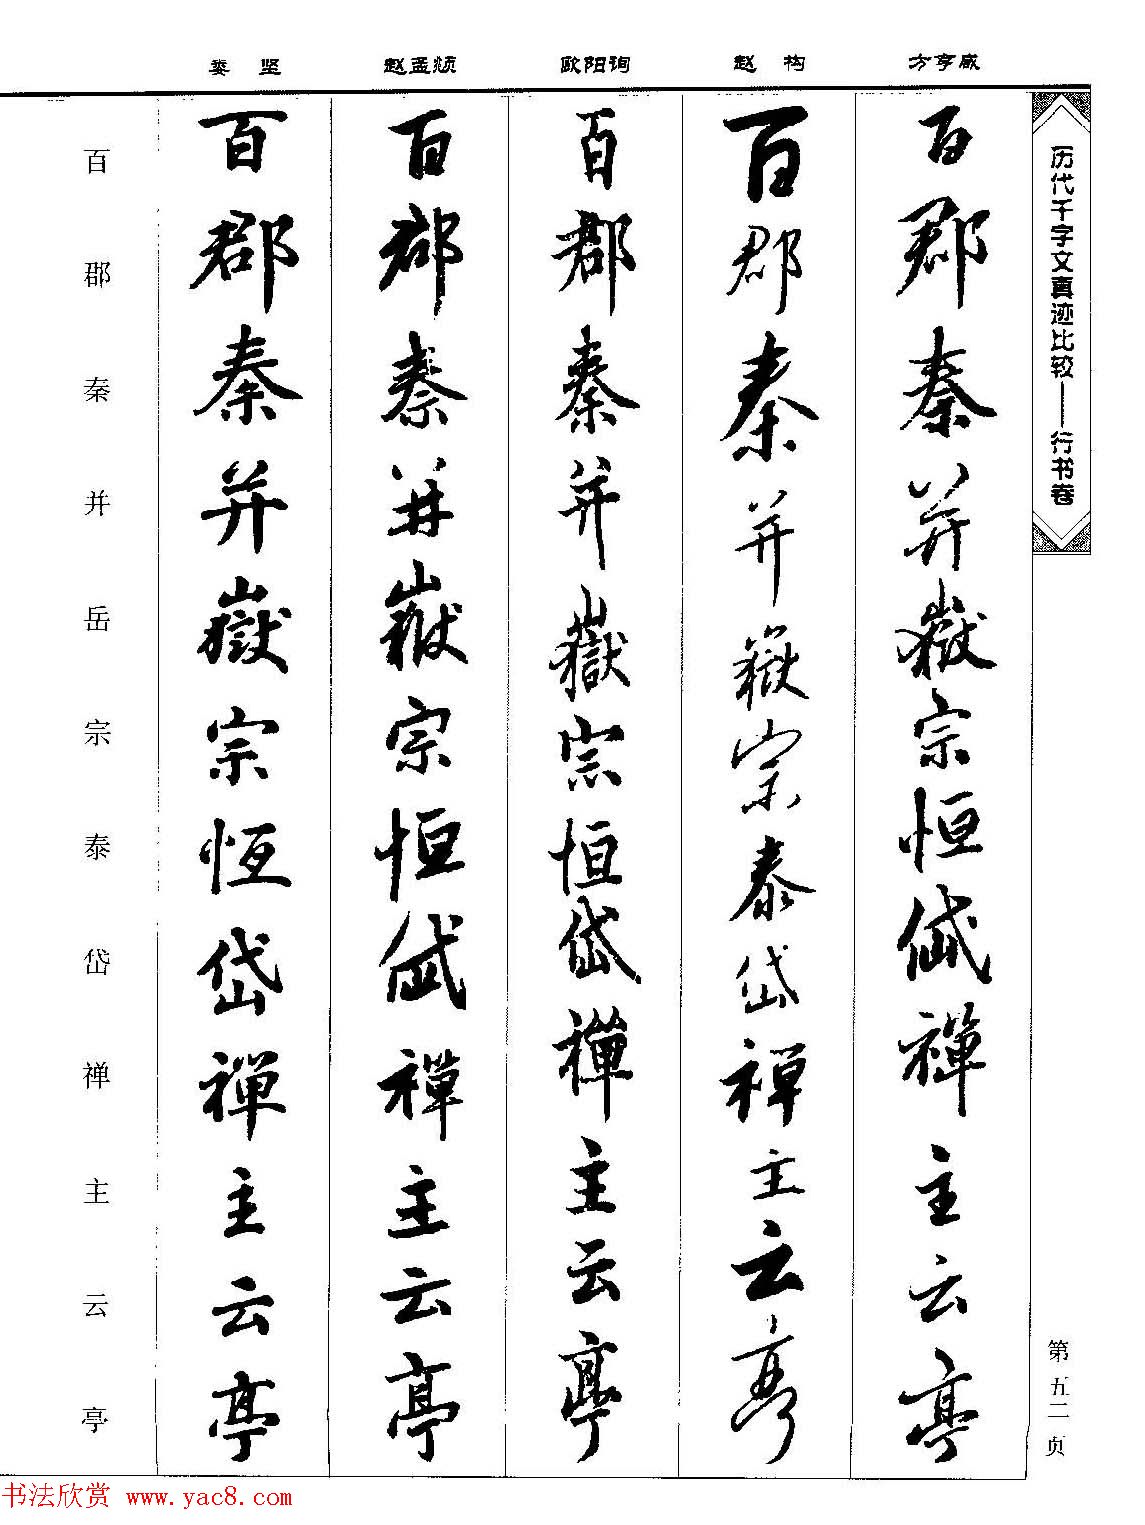 历代千字文真迹比较——行书卷
第五二页
方亨咸
百郡秦并嶽宗恒岱禪主云亭
赵构
百郡秦并嶽宗泰岱禪主云亭
欧阳询
百郡秦并嶽宗恒岱禪主云亭
赵孟頫
百郡秦并嶽宗恒岱禪主云亭
娄坚
百郡秦并嶽宗恆岱禪主云亭
百郡秦并岳宗泰岱禅主云亭
书法欣赏 www.yac8.com